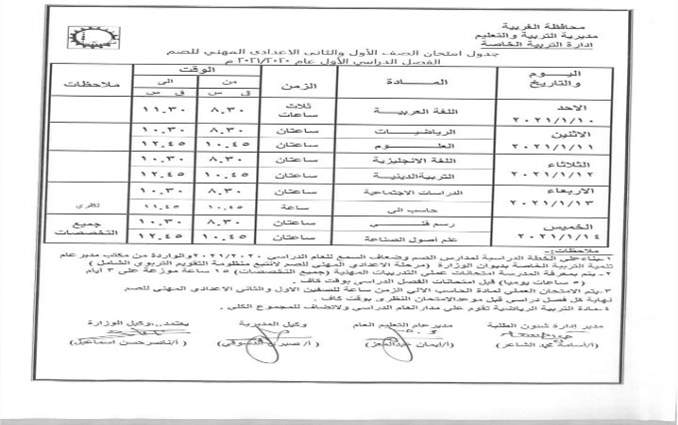 محافظة الغربية
مديرية التربية والتعليم
إدارة التربية الخاصة
جدول امتحان الصف الأول والثانى الاعدادى المهني للصم
الفصل الدراسي الأول عام ٢٠٢١/٢٠٢٠ م
اليوم والتاريخ المادة الزمن الوقت ملاحظات
من الى
ق س ق س
الاحد ٢٠٢١/١/١٠ اللغة العربية ثلاث ساعات ٨.٣٠ ١١.٣٠
الاثنين ٢٠٢١/١/١١ الرياضيات ساعتان ٨.٣٠ ١٠.٣٠
العلوم ساعتان ١٠.٤٥ ١٢.٤٥
الثلاثاء ٢٠٢١/١/١٢ اللغة الانجليزية ساعتان ٨.٣٠ ١٠.٣٠
التربية الدينية ساعتان ١٠.٤٥ ١٢.٤٥
الاربعاء ٢٠٢١/١/١٣ الدراسات الاجتماعية ساعتان ٨.٣٠ ١٠.٣٠
حاسب الى ساعة ١٠.٤٥ ١١.٤٥ نظري
الخميس ٢٠٢١/١/١٤ رسم فني ساعتان ٨.٣٠ ١٠.٣٠ جميع التخصصات
علم أصول الصناعة ساعتان ١٠.٤٥ ١٢.٤٥
ملاحظات:-
١-بناء على الخطة الدراسية لمدارس الصم وضعاف السمع للعام الدراسي ٢٠٢١/٢٠٢٠ والواردة من مكتب مدير عام
تنمية التربية الخاصة بديوان الوزارة (مرحلة الاعدادى المهني للصم لاتتبع منظومة التقويم التربوى الشامل)
٢- يتم بمعرفة المدرسة امتحانات عملى التدريبات المهنية (جميع التخصصات) ١٥ ساعة موزعة على ٣ أيام
(٥ ساعات يوميا) قبل امتحانات الفصل الدراسى بوقت كاف.
٣-يتم الامتحان العملي لمادة الحاسب الالي الزمن ساعة للصفين الاول والثانى الاعدادى المهني للصم
نهاية كل فصل دراسي قبل موعد الامتحان النظرى بوقت كاف.
٤-مادة التربية الرياضية تقوم على مدار العام الدراسى ولاتضاف للمجموع الكلى.
مدير إدارة شئون الطلبة مدير عام التعليم العام وكيل المديرية يعتمد،،،وكيل الوزارة
(أ/أسامة محمد الشاعر) (أ/ايمان عبدالمعز) (أ/صبرى الدسوقي) (أ/ناصر حسن اسماعيل)